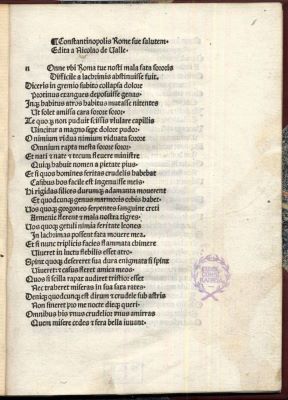 ¶Constantinopolis Rome sue salutem
Edita a Nicolao de Valle.
n Onne vbi Roma tue nosti mala fata sororis
Difficile a lachrimis abstinuisse fuit.
Diceris in gremio subito collapsa dolore
Protinus exangues deposuisse genas.
Inqʒ habitus atros habitus mutasse nitentes
Ut solet amissa cara sorore soror.
Te quoqʒ non puduit scissis vlulare capillis
Vincitur a magno sepe dolore pudor.
O nimium vidua nimium viduata sorore
Omnium rapta mesta sorore soror.
Et nati et nate et tecum flevere ministre
Quiqʒ habuit nomen a pietate pius.
Et si quos homines feritas crudelis habebat
Casibus hos facile est ingenuisse meis.
Hi rigidas silices durumqʒ adamanta mouerent
Et quodcunqʒ genus marmoris orbis habet.
Vos quoqʒ gorgoneo serpentes sanguine creti
Armenie flerent et mala nostra tigres.
Vos quoqʒ getuli nimia feritate leones
In lachrimas possent fata mouere mea.
Et si nunc triplicis facies flammata chimere
Viueret in luctu flebilis esset atro.
Spinx quoqʒ desereret sua dura enigmata si spinx
Viueret et casus fleret amica meos.
Quos si scilla rapax audiret tristior esset
Nec traheret miseras in sua saxa rates.
Deniqʒ quodcunqʒ est dirum et crudele sub astris
Non sineret pro me nocte dieqʒ queri.
Omnibus his vnus crudelior vnus amirras
Quem misere cedes et fera bella iuuant.